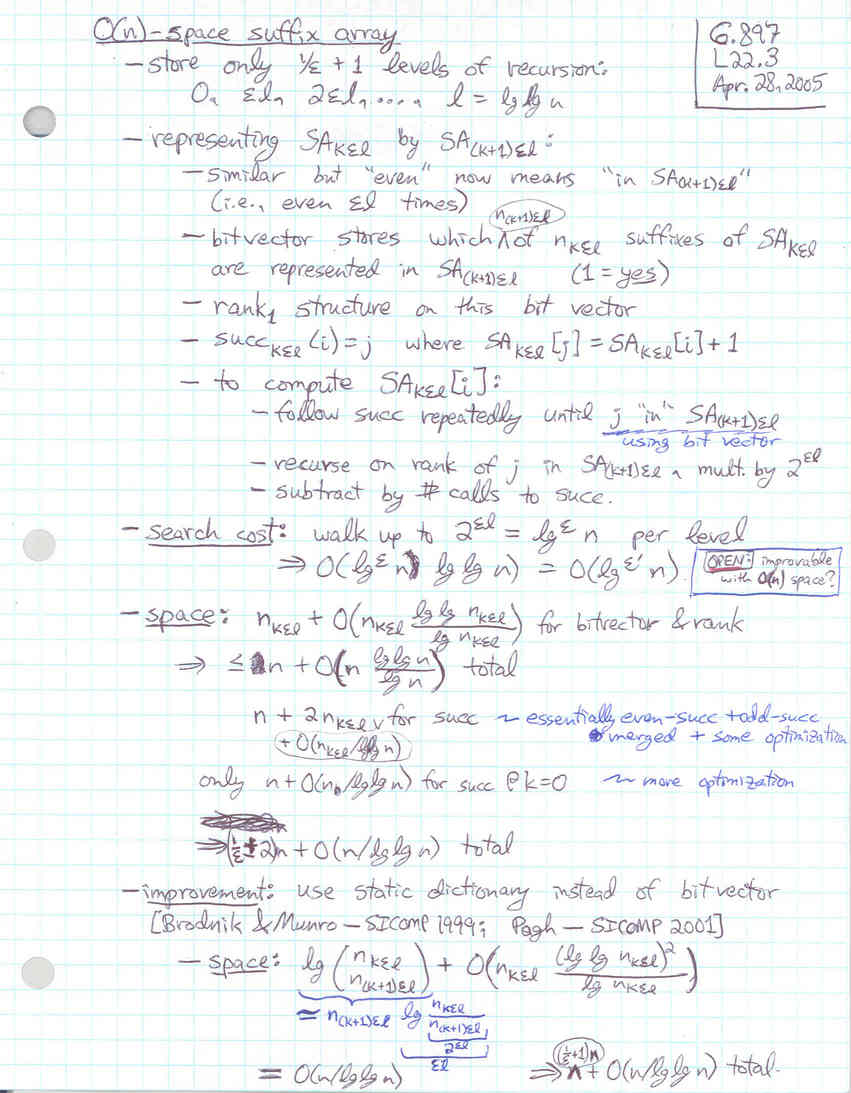 O(n)-space suffix array
6.897
L22.3
Apr. 28, 2005
- store only 1/ε + 1 levels of recursion:
0, εl, 2εl, ..., l = lg lg n
- representing SA_{kεl} by SA_{(k+1)εl}:
- similar but "even" now means "in SA_{(k+1)εl}"
(i.e., even εl times)
n_{(k+1)εl}
- bitvector stores which ∧ of n_{kεl} suffixes of SA_{kεl}
are represented in SA_{(k+1)εl} (1 = yes)
- rank₁ structure on this bit vector
- succ_{kεl}(i) = j where SA_{kεl}[j] = SA_{kεl}[i] + 1
- to compute SA_{kεl}[i]:
- follow succ repeatedly until j "in" SA_{(k+1)εl}
using bit vector
- recurse on rank of j in SA_{(k+1)εl}, mult. by 2^{εl}
- subtract by # calls to succ.
- search cost: walk up to 2^{εl} = lg^ε n per level
⇒ O(lg^ε n lg lg n) = O(lg^{ε'} n)
OPEN: improvable
with O(n) space?
- space: n_{kεl} + O(n_{kεl} lg lg n_{kεl} / lg n_{kεl}) for bitvector & rank
⇒ ≤ n + O(n lg lg n / lg n) total
n + 2n_{kεl} ∨ for succ ~ essentially even-succ + odd-succ
+ O(n_{kεl}/lg lg n)
merged + some optimization
only n + O(n/lg lg n) for succ @ k=0 ~ more optimization
⇒ (1/ε + 2)n + O(n/lg lg n) total
- improvement: use static dictionary instead of bitvector
[Brodnik & Munro - SICOMP 1999; Pagh - SICOMP 2001]
- space: lg (n_{kεl} n_{(k+1)εl}) + O(n_{kεl} (lg lg n_{kεl})² / lg n_{kεl})
≈ n_{(k+1)εl} lg n_{kεl} / n_{(k+1)εl}
2^{εl}
εl
= O(n/lg lg n)
(1/ε+1)n
⇒ n + O(n/lg lg n) total.